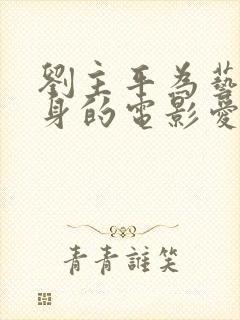 劉主平為藝
身的電影愛
青青誰笑